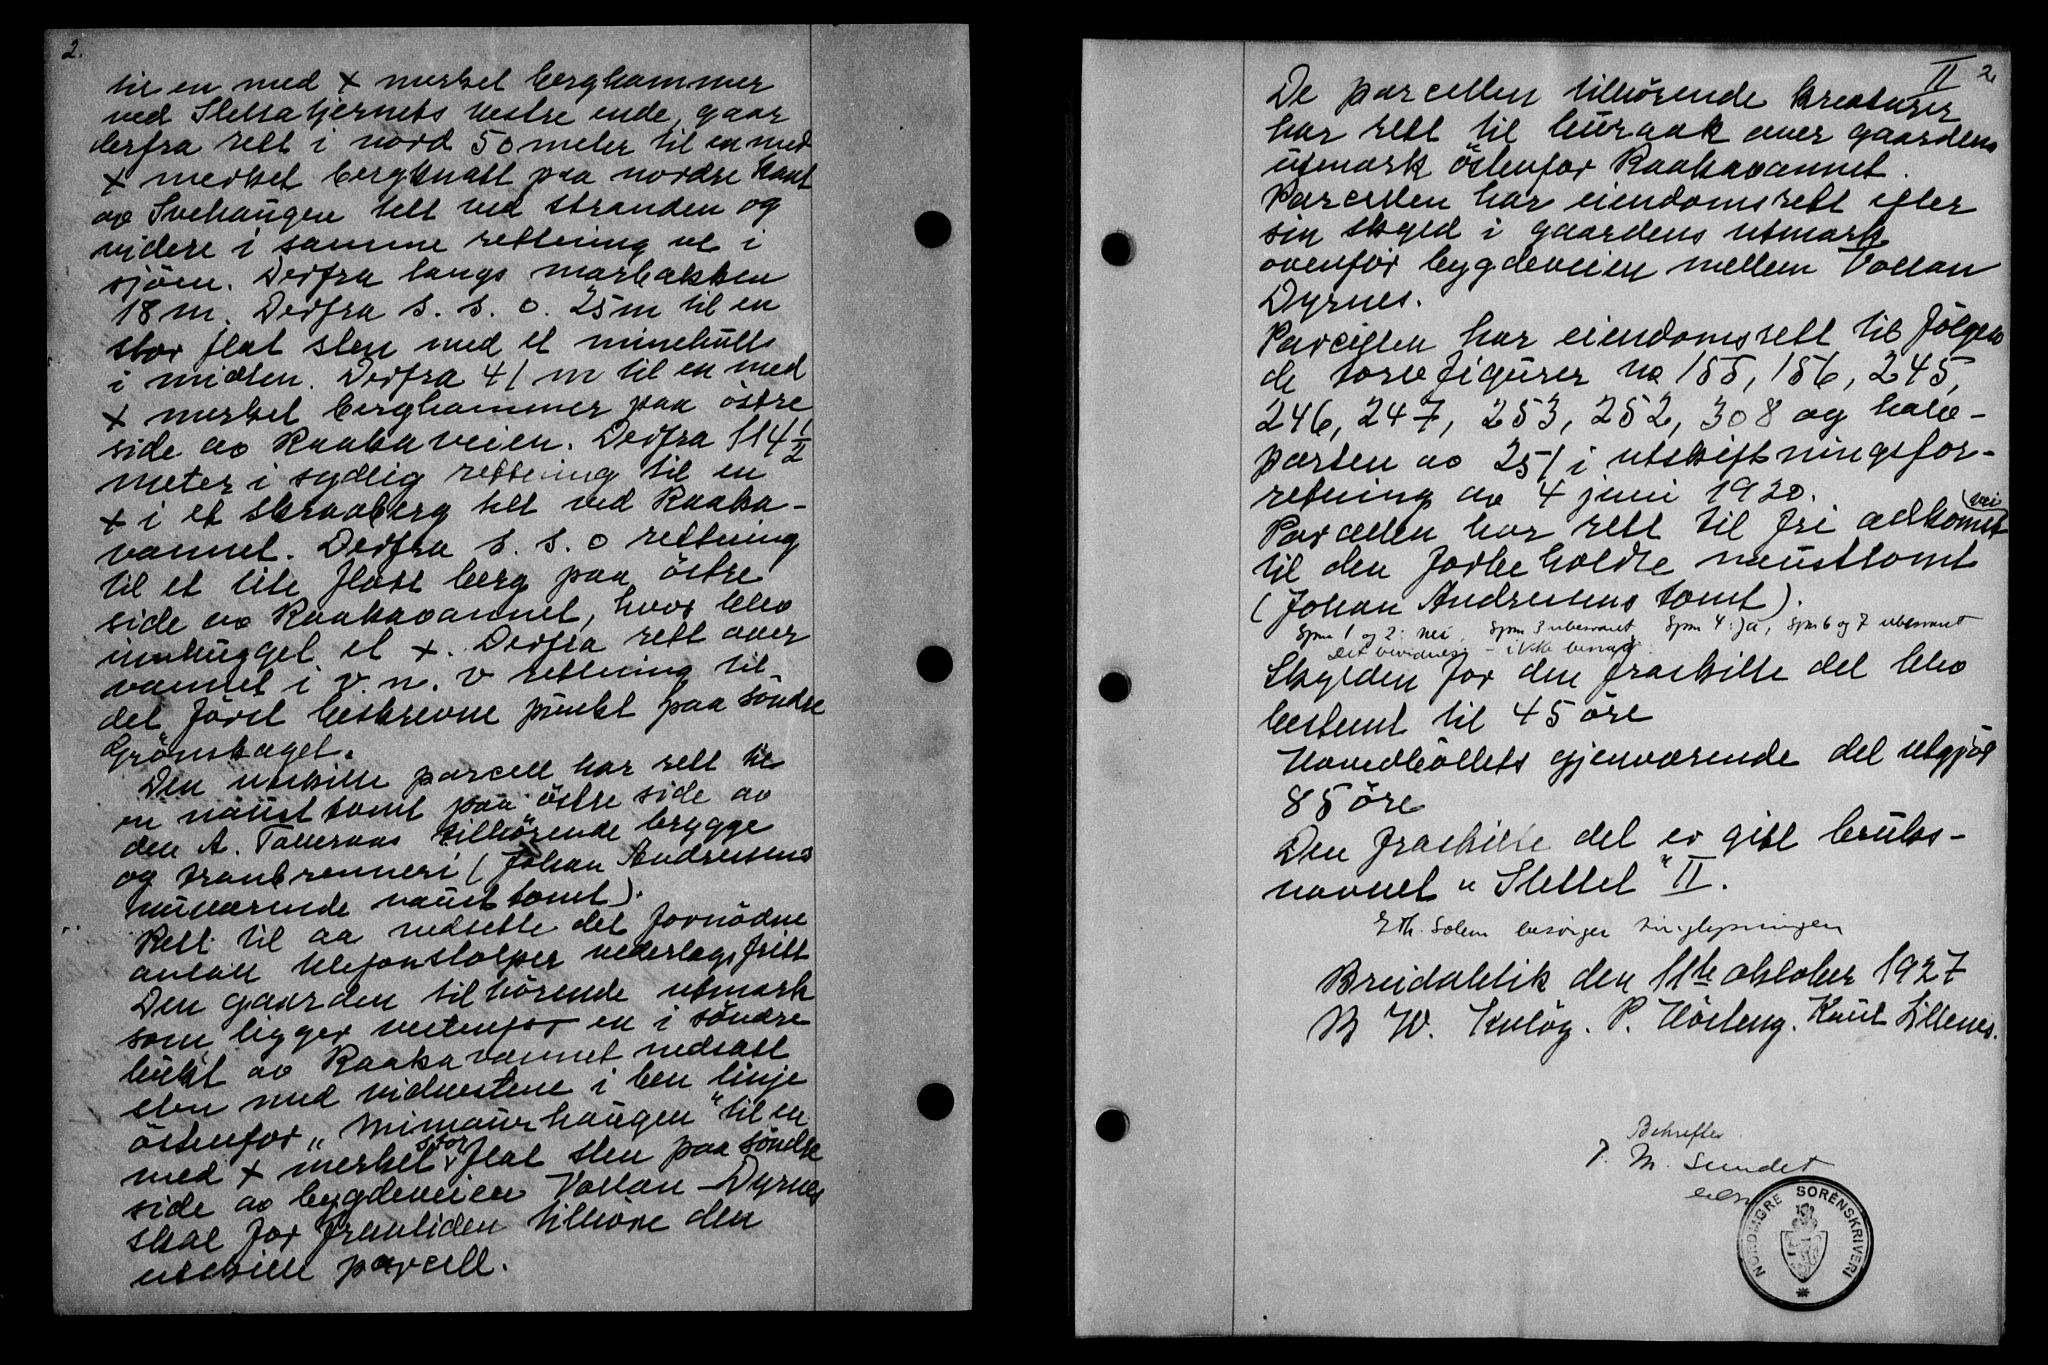 2.
til en med + merket berghammer
ved Slettatjernets vestre ende, gaar
derfra rett i nord 50 meter til en med
+ merket bergknatt paa nordre kant
av Svehaugen tett ved stranden og
videre i samme rettning ut i
sjøen. Derfra langs marbakken
18 m. Derfra s. s. o. 25 m til en
stor flat sten med et minehull
i midten. Derfra 41 m til en med
+ merket berghammer paa östre
side av Raakaveien. Derfra 114 1/2
meter i sydlig rettning til en
+ i et skraaberg tett ved Raaka-
vannet. Derfra s. s. o rettning
til et lite flatt berg paa östre
side av Raakavannet, hvor blev
innhugget et +. Derfra rett over
vannet i v. n. v rettning til
det först beskrevne punkt paa söndre
Grönskaget.
Den utskilte parcell har rett til
en naust tomt paa östre side av
den A. Talleraas tilhörende brygge
og tranbrenneri (Johan Andresens
nuværende naust tomt).
Rett til aa nedsette det fornödne
antall telefonstolper vederlagsfritt
Den gaarden tilhörende utmark
som ligger vestenfor en i söndre
bukt av Raakavannet nedsatt
sten med vidnestene i ben linje
östenfor „Mimaurhaugen" til en
med + merket stor flat sten paa söndre
side av bygdeveien Vollan - Dyrnes
skal for framtiden tilhöre den
utskilte parcell.
II 2
De parcellen tilhörende kreaturer
har rett til buraak over gaardens
utmark östenfor Raakavannet.
Parcellen har eiendomsrett efter
sin skyld i gaardens utmark
ovenfor bygdeveien mellem Vollan
Dyrnes.
Parcellen har eiendomsrett til fölgen
de torvfigurer no 155, 156, 245,
246, 247, 253, 252, 308 og halv-
parten av 251 i utskiftningsfor-
retning av 4 juni 1920.
Parcellen har rett til fri adkomst vei
til den forbeholdte nausttomt
(Johan Andresens tomt).
Spm 1 og 2: nei. Spm 3 ubesvaret. Spm 4: Ja, Spm 6 og 7 ubesvaret
Det bevidnes - ikke
Skylden for den fraskilte del blev
bestemt til 45 öre
Hovedbölets gjenværende del utgjör
85 öre
Den fraskilte del er gitt bruks-
navnet „Slettet" II.
E Th. Solem besörger tinglysningen
Breidablik den 11te oktober 1927
P. Knut Lillenes.
Bekreftes
P. M. Sundet
NORDMØRE SORENSKRIVERI